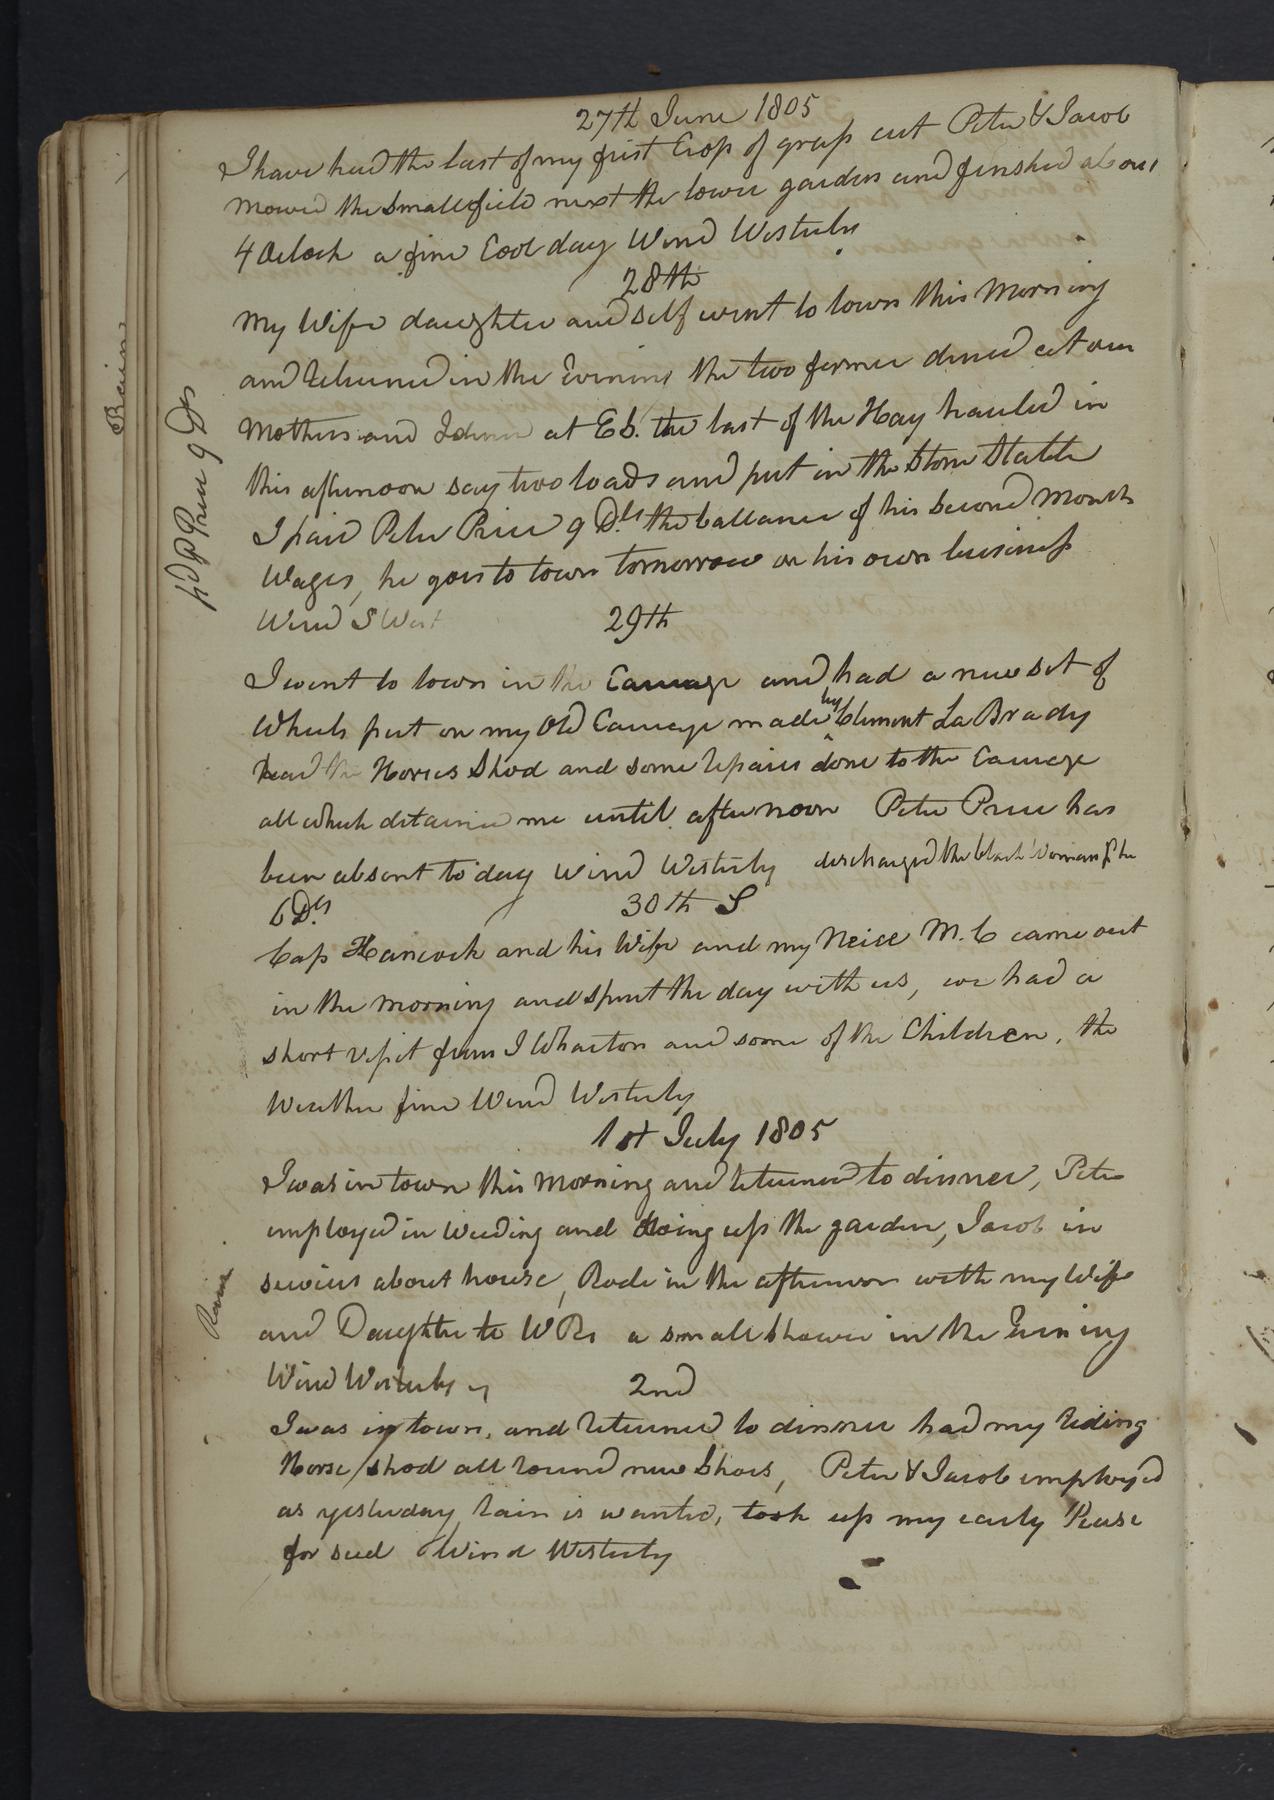 27th June 1805
I have had the last of my first Crop of grass cut Peter & Jacob
mowed the small field next the lower garden and finshed about
4 OClock a fine Cool day Wind Westerly
28th
My Wife daughter and self went to town this Morning
and returned in the Evening the two former dined at our
Mothers and I dined at Eb. the last of the Hay hauled in
this afternoon say two loads and put in the Stone Stable
I paid Peter Price 9 Dls the ballance of his Second Month
Wages, he goes to town tomorrow on his own business
pd P Price 9 Drs
Wind S West
29th
I went to town in the Carriage and had a new set of
Wheels put on my Old Carriage made by Clement La Brady
had the Horses Shod and some repairs done to the Carriage
all which detained me until afternoon Peter Price has
been absent to day Wind Westerly discharged the black Woman P he
6 Dls
30th S
Cap Hancock and his Wife and my Neice M. C came out
in the morning and spent the day with us, we had a
short visit from I Wharton and some of the Children, the
Weather fine Wind Westerly
1st July 1805
I was in town this Morning and returned to dinner, Peter
employed in Weeding and doing up the garden, Jacob in
sevices about house, Rode in the afternoon with my Wife
and Daughter to W Rs a small shower in the Evening
Rain
Wind Westerly
2nd
I was in town, and returned to dinner had my riding
Horse shod all round new Shoes, Peter & Jacob employed
as yesterday rain is wanted, took up my early Pease
for seed Wind Westerly
Rain